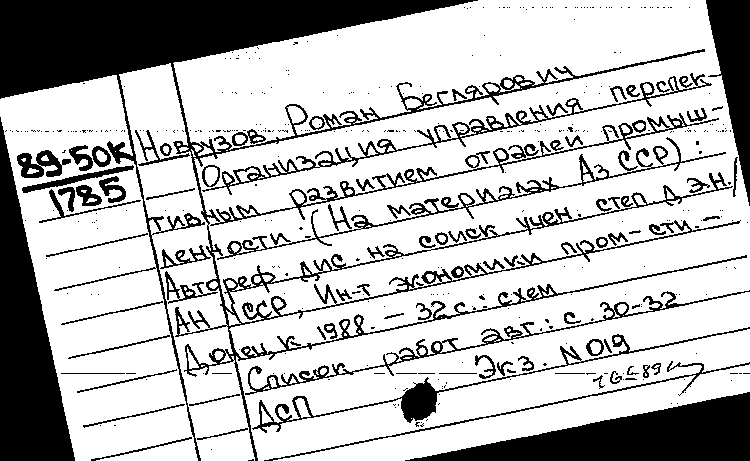 89-50К
1785
Новрузов, Роман Беглярович
Организация управления перспек-
тивным развитием отраслей промыш-
ленности: (На материалах Аз ССР):
Автореф. дис. на соиск. учен. степ. д.э.н./
АН УССР, Ин-т экономики пром-сти. –
Донецк, 1988. – 32 с.: схем
Список работ авт.: с. 30-32
ДСП Экз. N 019